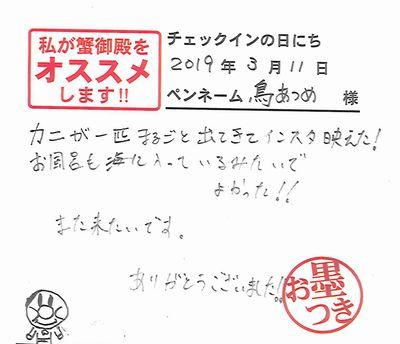 私が蟹御殿を
オススメ
します!!
チェックインの日にち
2019年3月11日
ペンネーム 鳥あつめ 様
カニが一匹まるごと出てきてインスタ映えた!
お風呂も海に入っているみたいで
よかった!!
また来たいです。
ありがとうございました!!
お墨つき